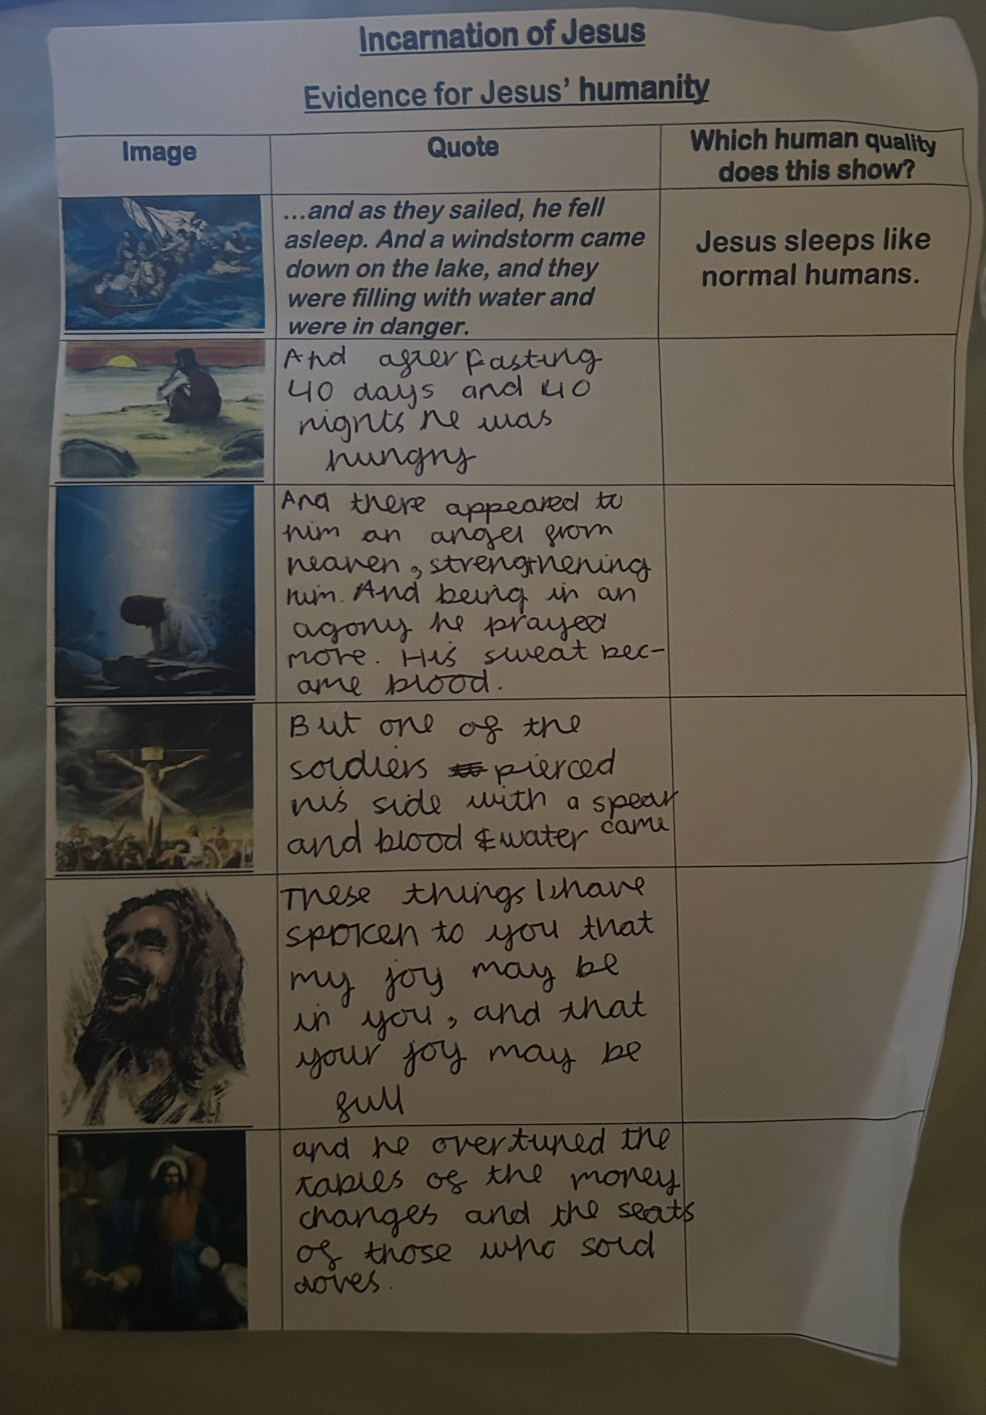 Incarnation of Jesus
Evidence for Jesus' humanity
Image
Quote
Which human quality
does this show?
...and as they sailed, he fell
asleep. And a windstorm came
down on the lake, and they
were filling with water and
were in danger.
Jesus sleeps like
normal humans.
And after fasting
40 days and 40
nights he was
hungry
And there appeared to
him an angel from
heaven, strengthening
him. And being in an
agony he prayed
more. His sweat bec-
ame blood.
But one of the
soldiers pierced
his side with a spear
and blood & water came
These things I have
spoken to you that
my joy may be
in you, and that
your joy may be
full
and he overtuned the
tables of the money
changes and the seats
of those who sold
doves.